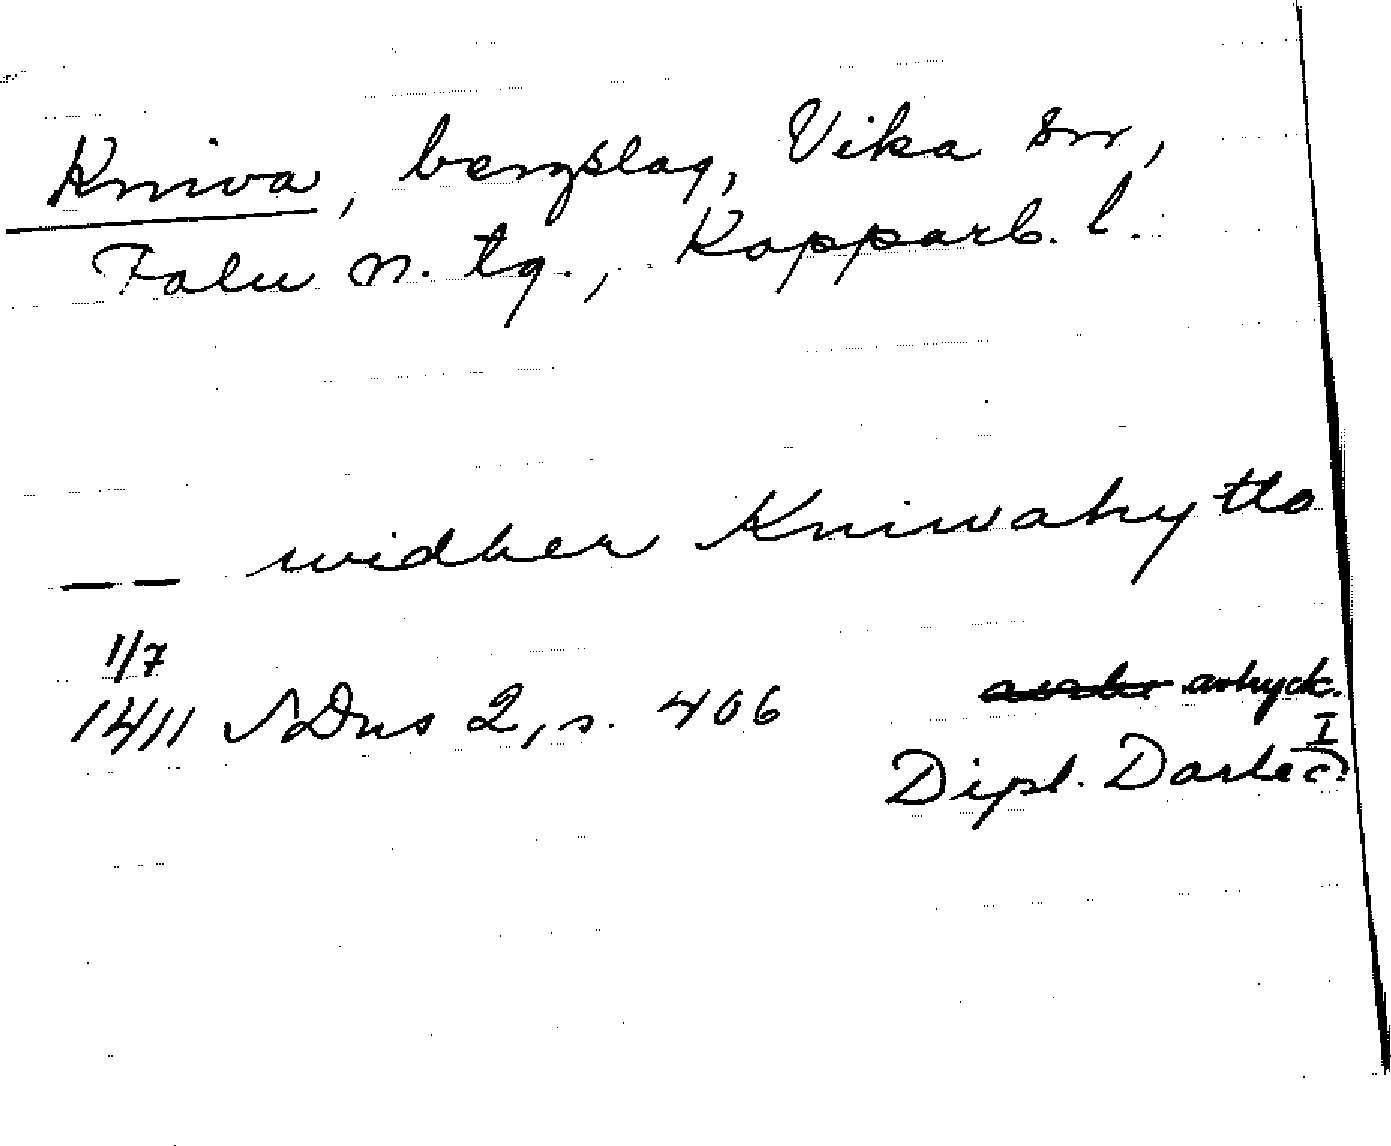 Kniva, bergslag, Vika sn,
Falu n. tg., Kopparb. l.
— — widher Kniwahytto
1/7
1411 SDns 2, s. 406 avtryck.
Dipl. Dalec I